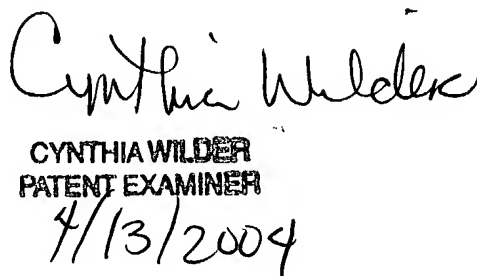 Cynthia Wilder
CYNTHIA WILDER
PATENT EXAMINER
4/13/2004